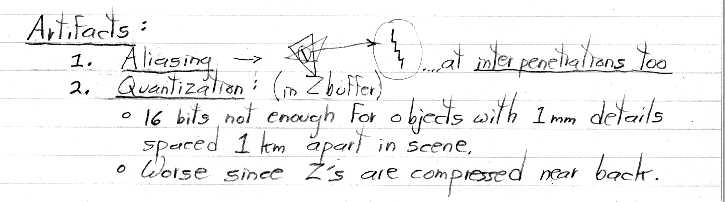 Artifacts :
1. Aliasing → ....at interpenetrations too
2. Quantization : (in Z buffer)
◦ 16 bits not enough for objects with 1 mm details
spaced 1 km apart in scene.
◦ Worse since Z's are compressed near back.